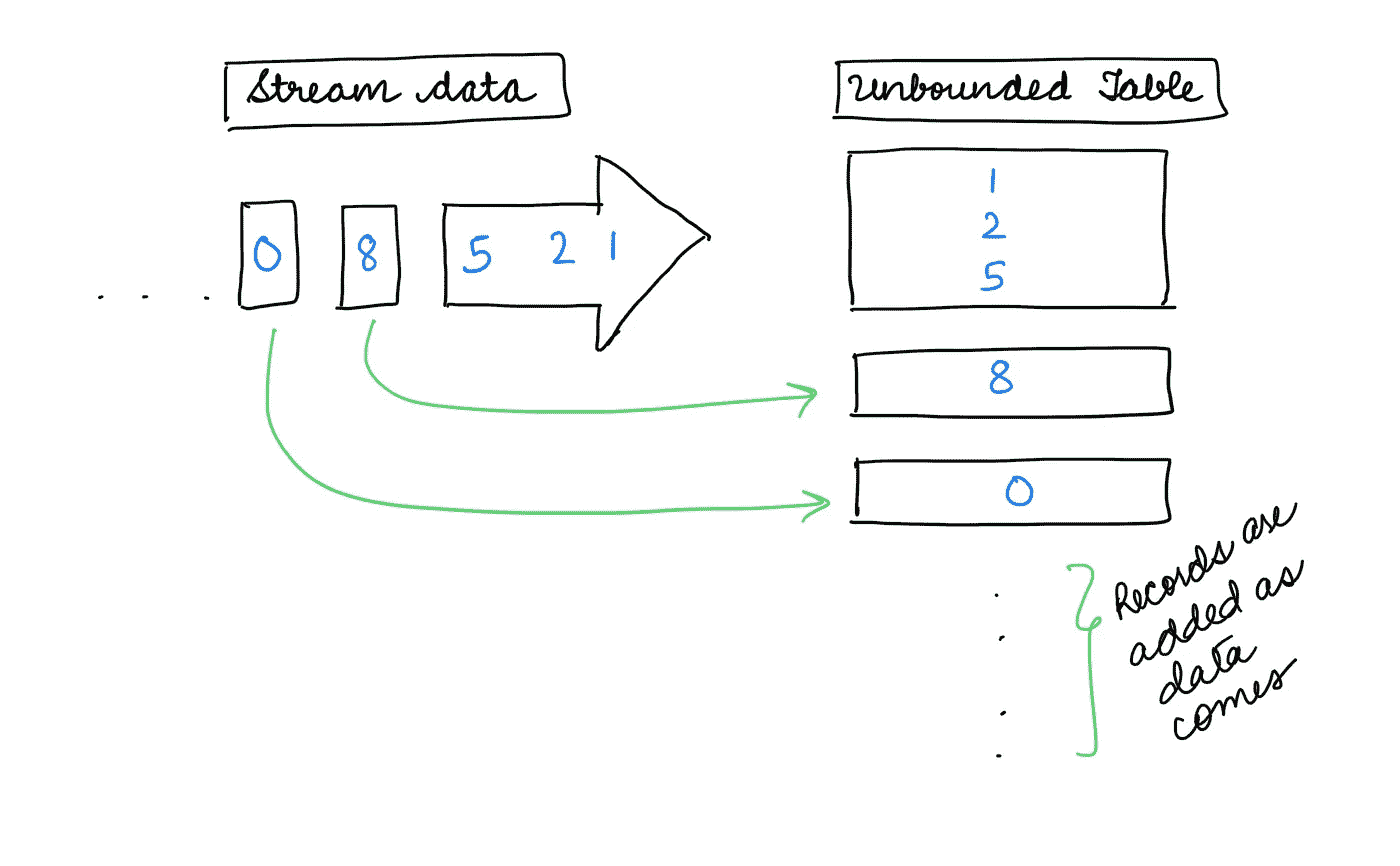 Stream data
Unbounded Table
0 8 5 2 1
1
2
5
8
0
Records are
added as
data
comes